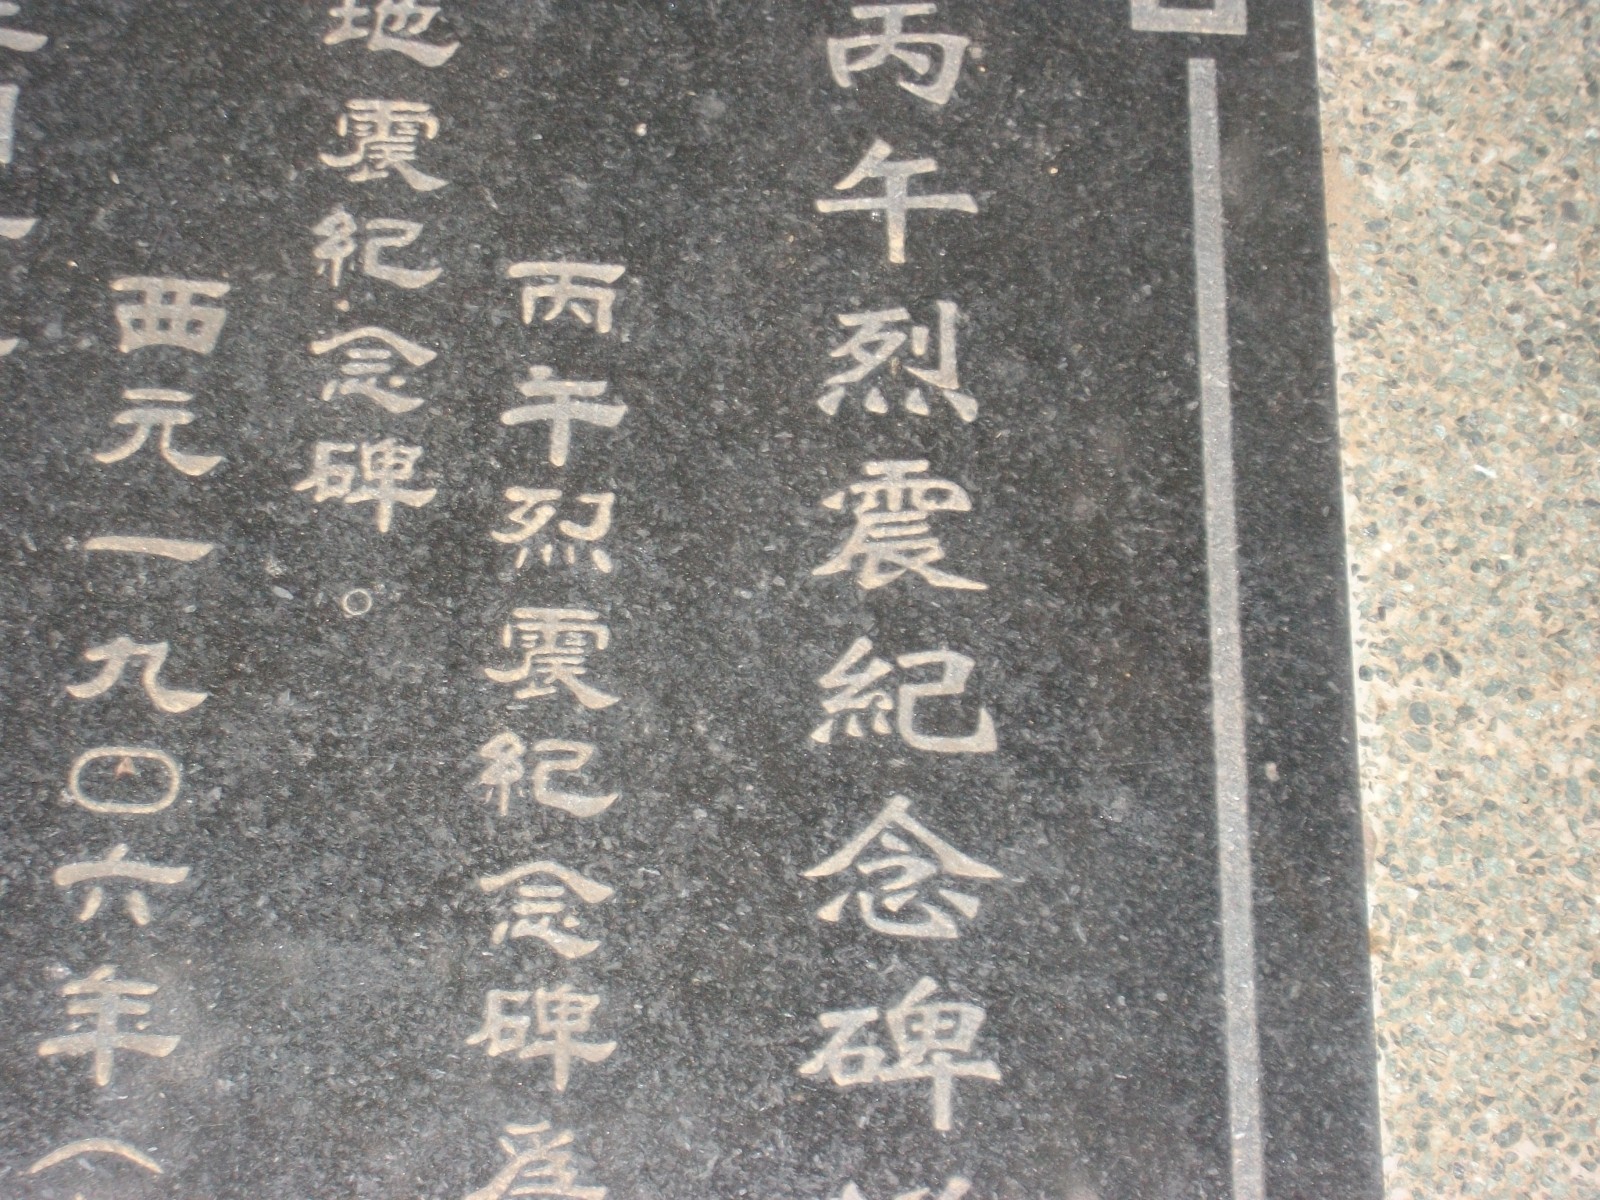 丙午烈震紀念碑
丙午烈震紀念碑為
地震紀念碑。
西元一九〇六年（